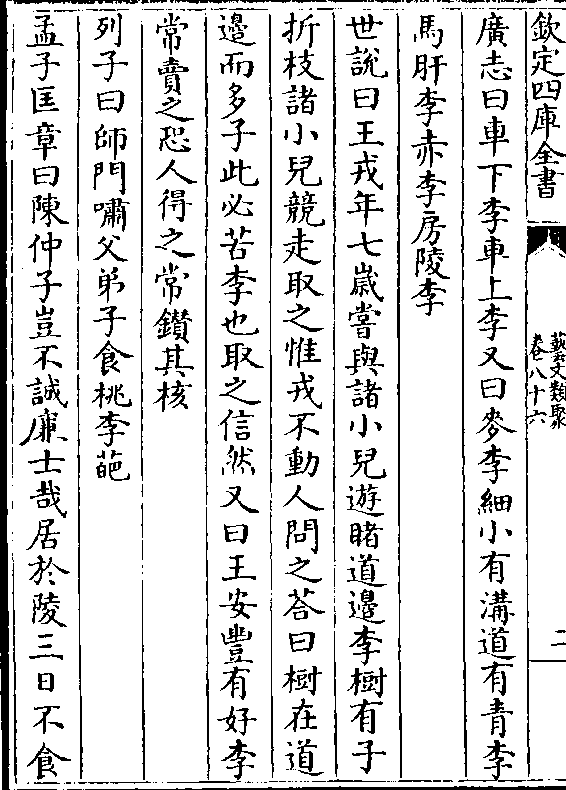 欽定四庫全書
藝文類聚
卷八十六
二
廣志曰車下李車上李又曰麥李細小有溝道有青李
馬肝李赤李房陵李
世說曰王戎年七歲嘗與諸小兒遊睹道邊李樹有子
折枝諸小兒競走取之惟戎不動人問之荅曰樹在道
邊而多子此必苦李也取之信然又曰王安豐有好李
常賣之恐人得之常鑽其核
列子曰師門嘯父弟子食桃李葩
孟子匡章曰陳仲子豈不誠廉士哉居於陵三日不食